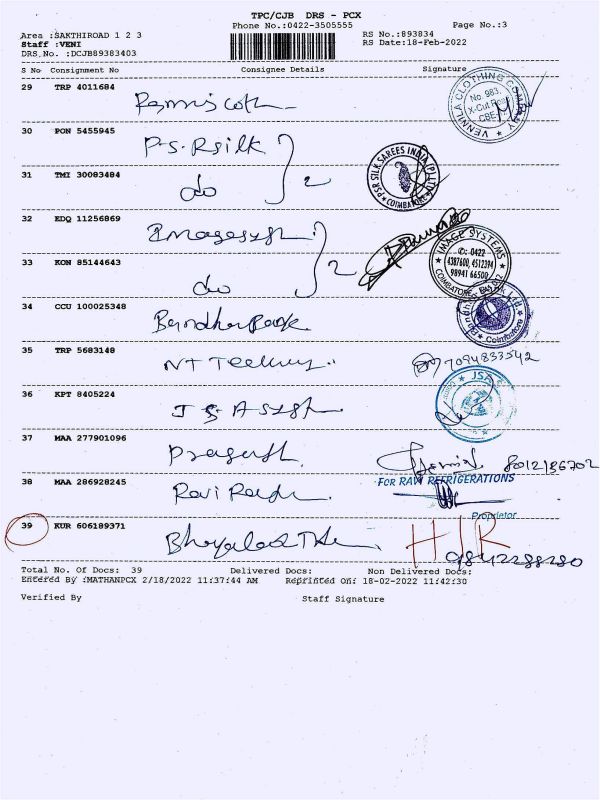 TPC/CJB DRS - PCX
Phone No.:0422-3505555 Page No.:3
Area :SAKTHIROAD 1 2 3 RS No.:893834
Staff :VENI RS Date:18-Feb-2022
DRS No. :DCJB89383403
S No Consignment No Consignee Details Signature
29 TRP 4011684
VENNILA CLOTHING COMPANY No. 983, X-Cut Road CBE
30 PON 5455945 P.S.R silk
PSR SILK SAREES INDIA (P) LTD COIMBATORE
31 TMI 30083484 do 2
32 EDQ 11256869
IMAGE SYSTEMS
✆: 0422
4387600, 4512394
98941 66500
33 KON 85144643 do 2
34 CCU 100025348 Bandhan Bank
Coimbatore
35 TRP 5683148 7094833542
36 KPT 8405224
JSA
37 MAA 277901096 Prakash 8012186702
38 MAA 286928245
FOR RAVI REFRIGERATIONS
Proprietor
39 KUR 606189371 H/R
9842288280
Total No. Of Docs: 39 Delivered Docs: Non Delivered Docs:
Entered By :MATHANPCX 2/18/2022 11:37:44 AM Reprinted On: 18-02-2022 11:42:30
Verified By Staff Signature